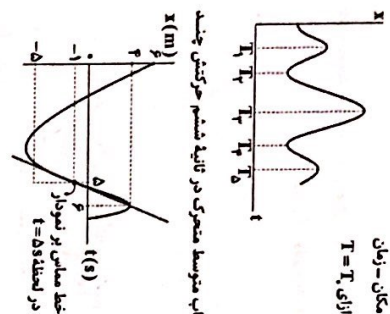 مکان - زمان
ازای T = T₀
x
T₁ T₂ T₃ T₄ T₅
t
اب متوسط متحرک در ثانیهٔ ششم حرکتش چند
x(m)
۶
۴
۰
-۱
-۵
۵
۶
t(s)
خط مماس بر نمودار
در لحظهٔ t = ۵s